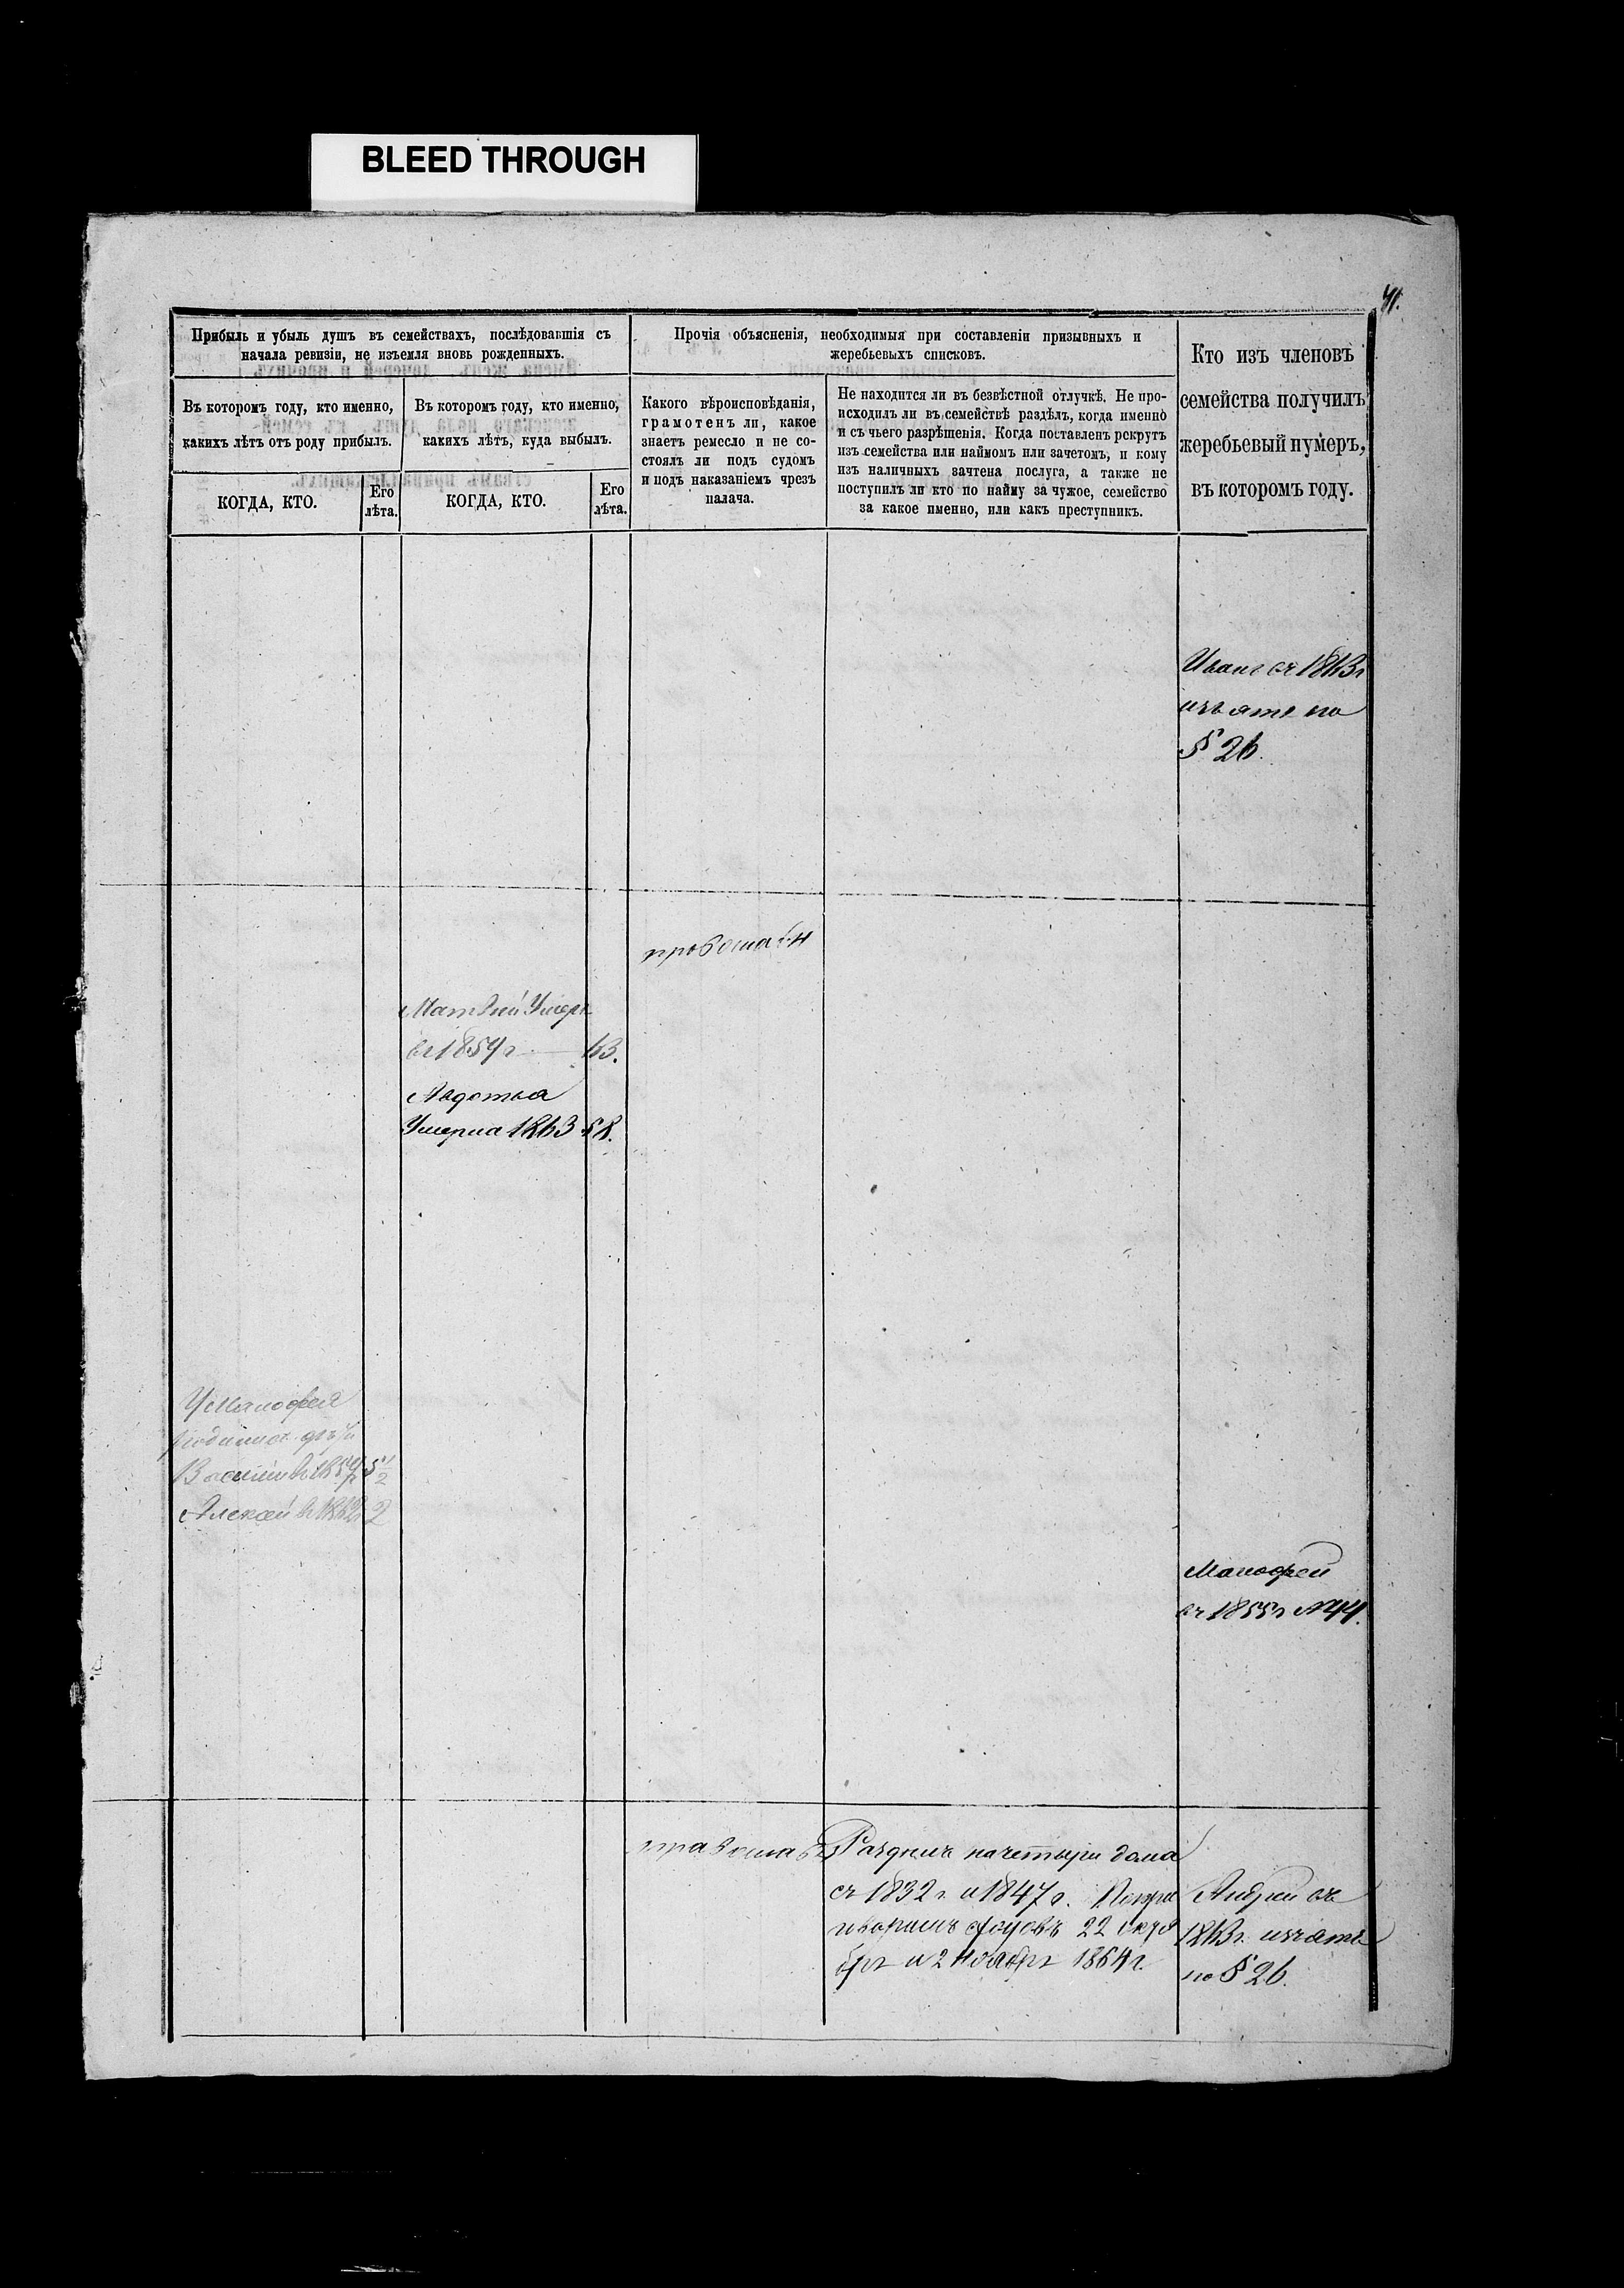 BLEED THROUGH
41.
Прибыль и убыль душъ въ семействахъ, послѣдовавшія съ
начала ревизіи, не изъемля вновь рожденныхъ.
Въ которомъ году, кто именно,
какихъ лѣтъ отъ роду прибылъ.
КОГДА, КТО.
Его
лѣта.
Въ которомъ году, кто именно,
какихъ лѣтъ, куда выбылъ.
КОГДА, КТО.
Его
лѣта.
Прочія объясненія, необходимыя при составленіи призывныхъ и
жеребьевыхъ списковъ.
Какого вѣроисповѣданія,
грамотенъ ли, какое
знаетъ ремесло и не со-
стоялъ ли подъ судомъ
и подъ наказаніемъ чрезъ
палача.
Не находится ли въ безвѣстной отлучкѣ. Не про-
исходилъ ли въ семействѣ раздѣлъ, когда именно
и съ чьего разрѣшенія. Когда поставленъ рекрутъ
изъ семейства или наймомъ или зачетомъ, и кому
изъ наличныхъ зачтена послуга, а также не
поступилъ ли кто по найму за чужое, семейство
за какое именно, или какъ преступникъ.
Кто изъ членовъ
семейства получилъ
жеребьевый нумеръ,
въ которомъ году.
Иванъ въ 1863г
изъятъ по
§ 26.
Матвѣй Умеръ
въ 1859г 63.
Авдотья
Умерла 1863 58.
У Манофея
родились
Василій въ 1859г 5 1/2
Алексѣй въ 1862г 2
Манофей
въ 1855г №44.
Раздѣлъ на четыре дома
съ 1832г. и 1847г.
22 октя
бря и 2 ноября 1864г.
Андрей въ
1863г. изъятъ
по § 26.